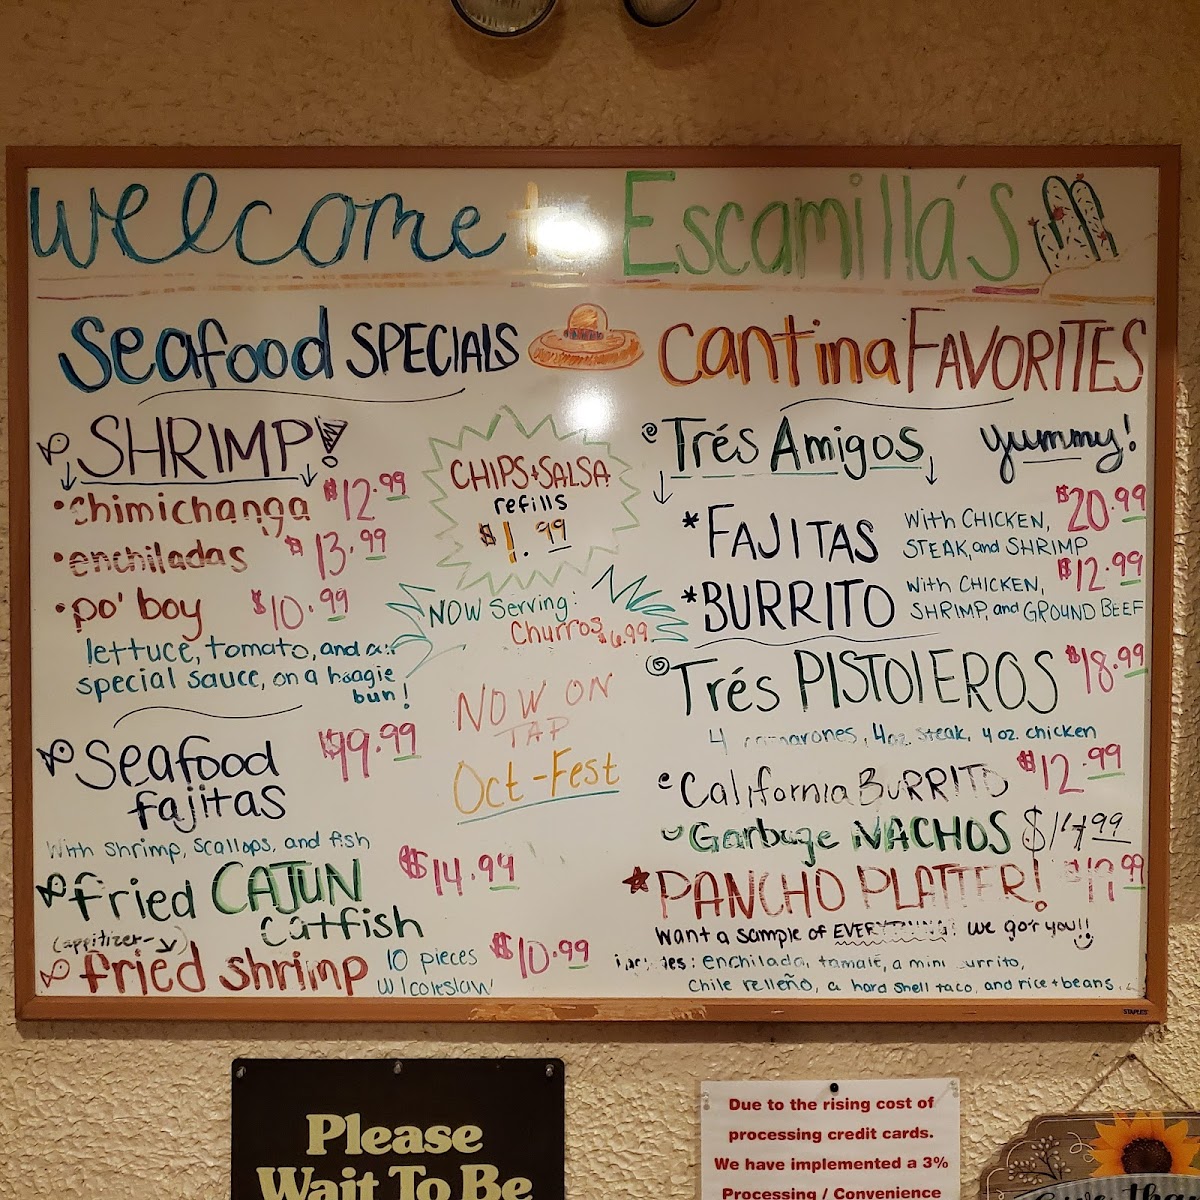 Welcome to Escamilla's
Seafood SPECIALS
SHRIMP!
•Chimichanga $12.99
•enchiladas $13.99
•po' boy $10.99
lettuce, tomato, and a
special sauce, on a hoagie
bun!
Seafood
fajitas
with shrimp, scallops, and fish
fried CAJUN $14.99
catfish
(appitizer→)
fried shrimp 10 pieces $10.99
w/coleslaw
CHIPS+SALSA
refills
$1.99
NOW serving:
Churros $6.99
NOW ON
TAP
Oct-Fest
Cantina FAVORITES
Trés Amigos yummy!
*FAJITAS with CHICKEN, $20.99
STEAK, and SHRIMP
*BURRITO with CHICKEN, $12.99
SHRIMP, and GROUND BEEF
Trés PISTOLEROS $18.99
4 oz. steak, 4 oz. chicken
California BURRITO $12.99
Garbage NACHOS $14.99
PANCHO PLATTER!
Want a sample of EVERYTHING! we got you!!
includes: enchilada, tamalé, a mini burrito,
chile relleño, a hard shell taco, and rice + beans
STAPLES
Please
Wait To Be
Due to the rising cost of
processing credit cards.
We have implemented a 3%
Processing / Convenience